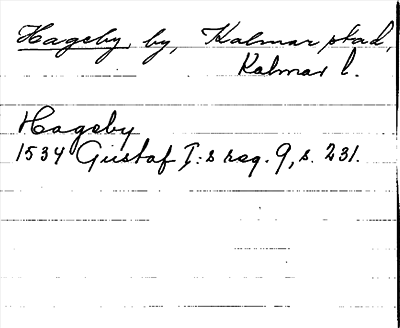 Hageby, by, Kalmar stad,
Kalmar l.
Hageby
1534 Gustaf I:s reg. 9, s. 231.